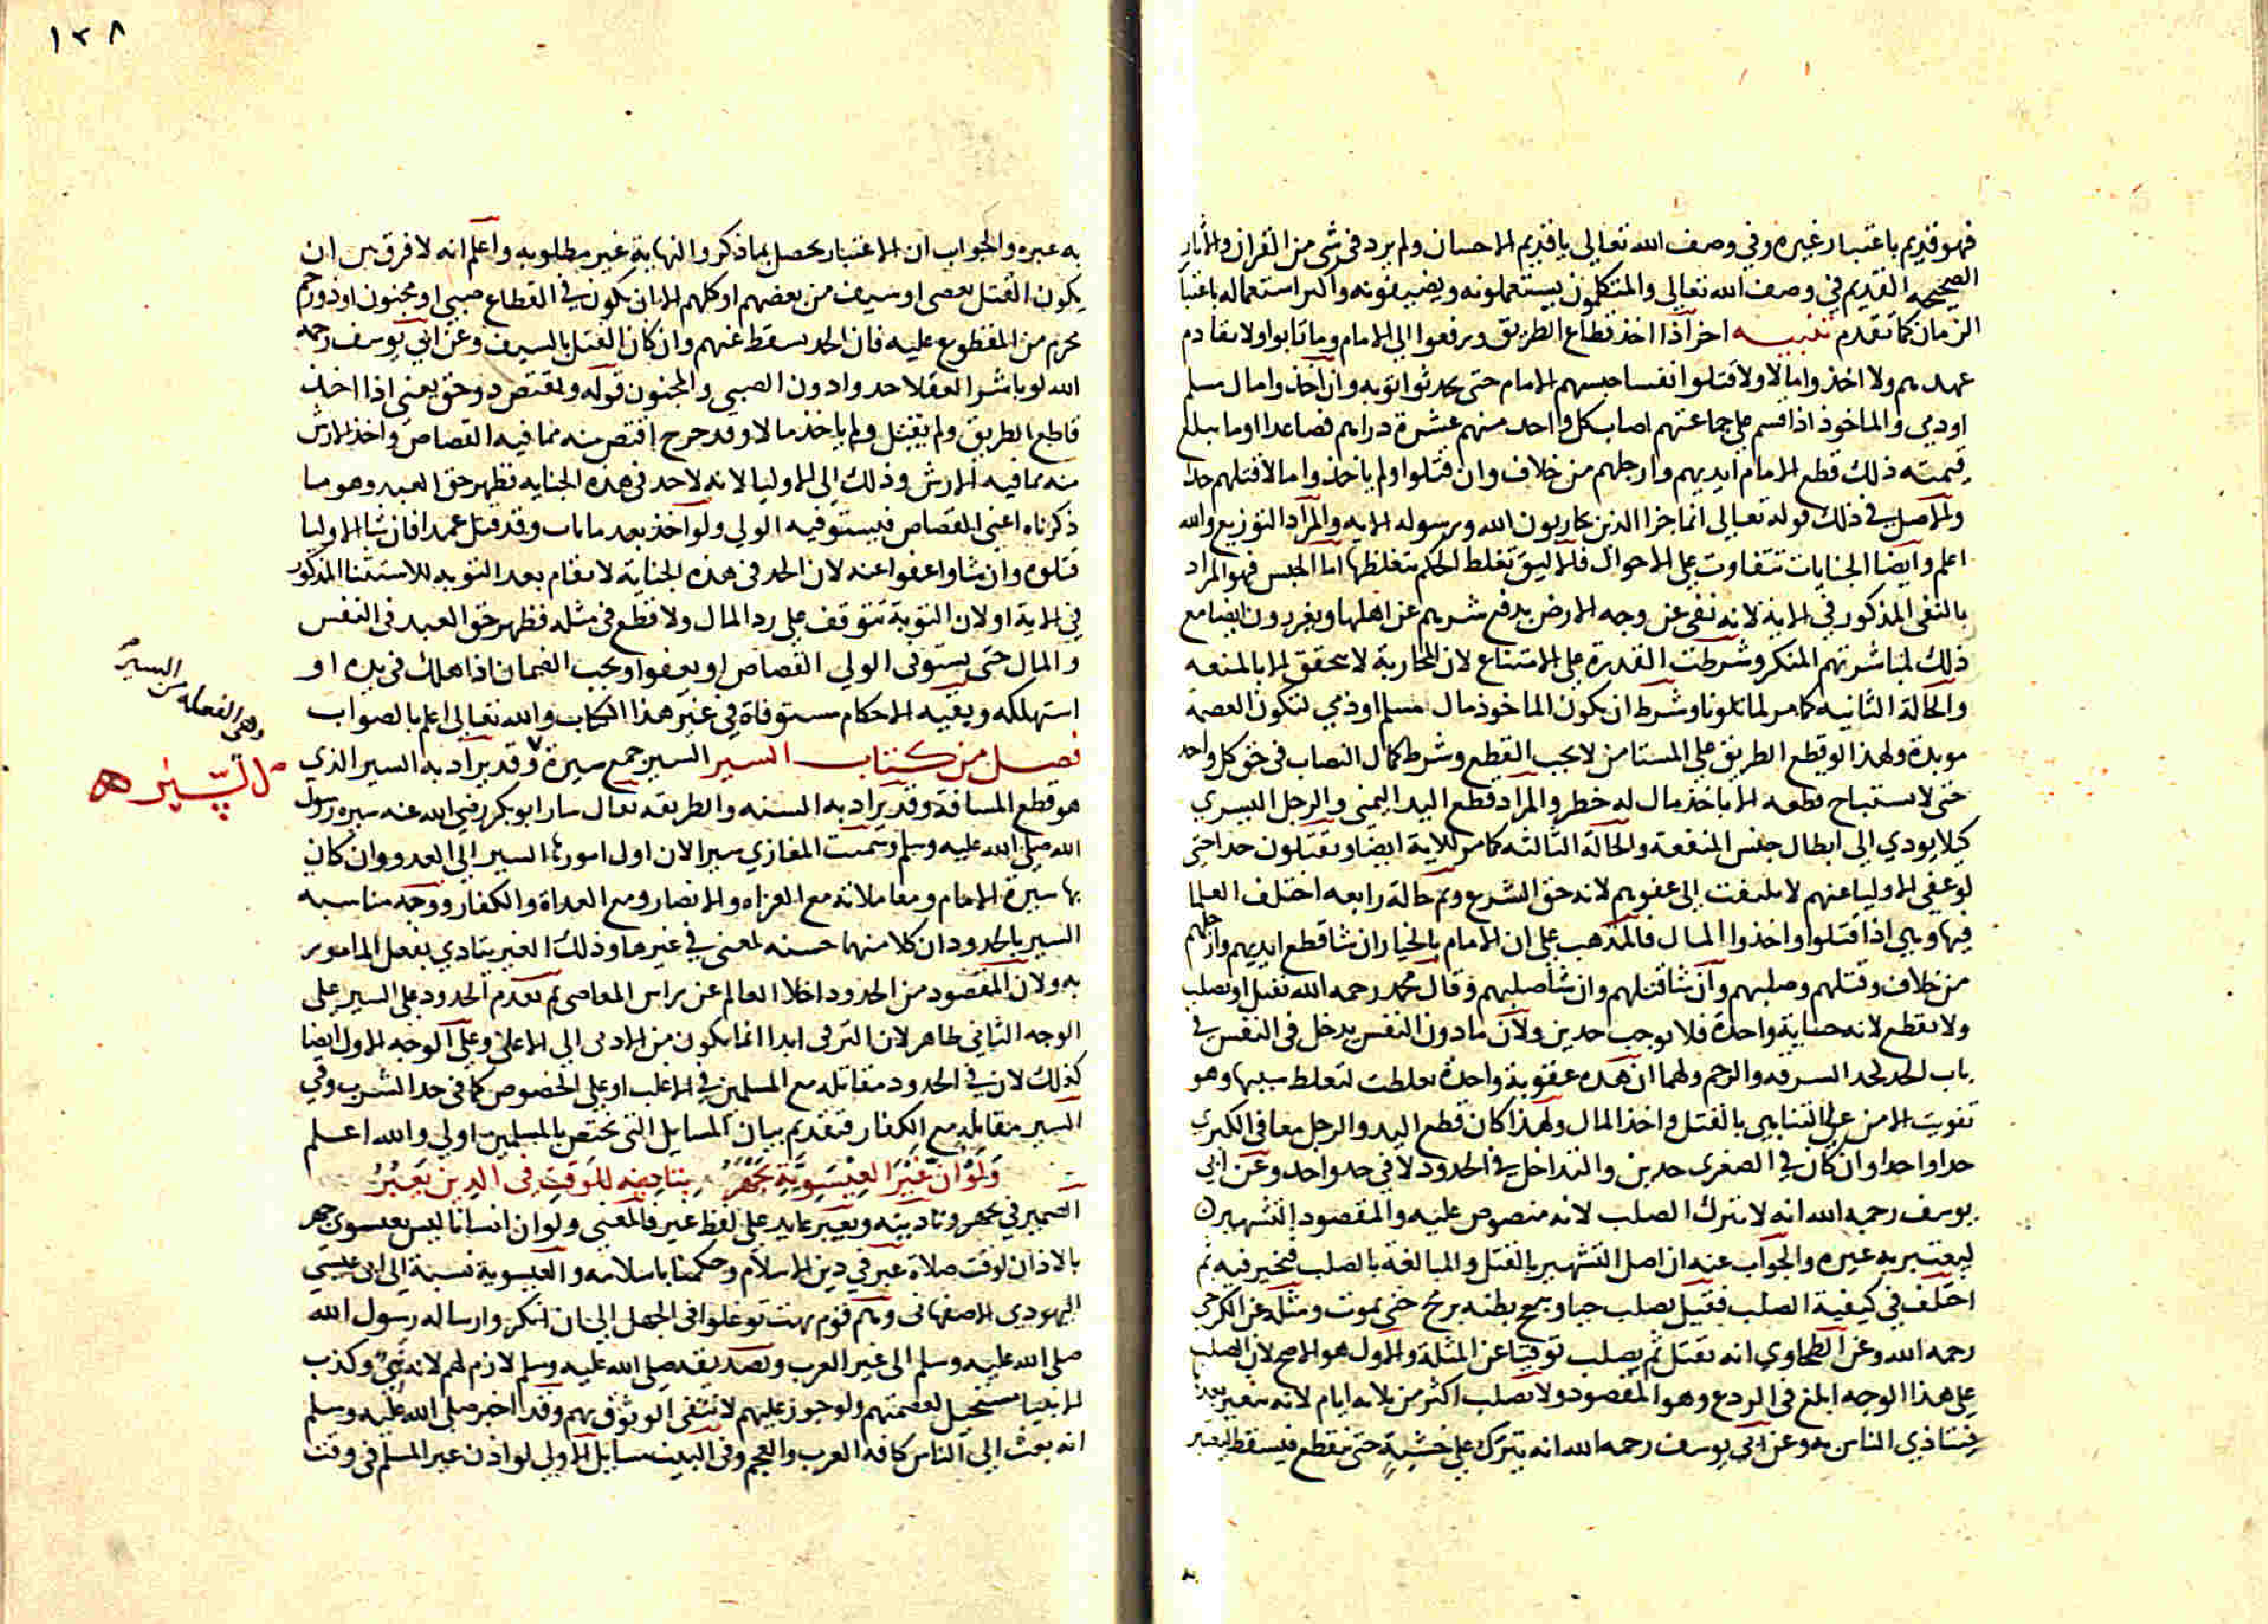 فهو قديم باعتبار غيره وفي وصف الله تعالى يا قديم الاحسان ولم يرد في شي من القران والاثار
الصحيحه القديم في وصف الله تعالى والمتكلمون يستعملونه ويضيفونه واكثر استعماله باعتبار
الزمان كما تقدم تنبيه اخر اذا اخذ قطاع الطريق ورفعوا الى الامام وما تابوا ولا تقادم
عهدهم ولا اخذوا مالا ولا قتلوا نفسا حبسهم الامام حتى يحدثوا توبه وان اخذوا مال مسلم
او ذمي والماخوذ اذا قسم على جماعتهم اصاب كل واحد منهم عشرة دراهم فصاعدا او ما يبلغ
قيمته ذلك قطع الامام ايديهم وارجلهم من خلاف وان قتلوا ولم ياخذوا مالا قتلهم حدا
والاصل في ذلك قوله تعالى انما جزا الذين يحاربون الله ورسوله الايه والمراد التوزيع والله
اعلم وايضا الجنايات تتفاوت على الاحوال فالاليق تغلظ الحكم بتغلظها اما الحبس فهو المراد
بالنفي المذكور في الاية لانه نفي عن وجه الارض بدفع شرهم عن اهلها ويعزرون ايضا مع
ذلك لمباشرتهم المنكر وشرطت القدرة على الامتناع لان المحاربة لا تتحقق الا بالمنعه
والحالة الثانيه كما مر لما تلونا وشرط ان يكون الماخوذ مال مسلم او ذمي لتكون العصمة
موبدة ولهذا لو قطع الطريق على المستامن لا يجب القطع وشرط كمال النصاب في حق كل واحد
حتى لا يستباح قطعه الا باخذ مال له خطر والمراد قطع اليد اليمنى والرجل اليسرى
كيلا يودي الى ابطال جنس المنفعة والحالة الثالثه كما مر للاية ايضا ويقتلون حدا حتى
لو عفي الاوليا عنهم لا يلتفت الى عفوهم لانه حق الشرع وثم حالة رابعه اختلف العلما
فيها وهي اذا قتلوا واخذوا المال فالمذهب على ان الامام بالخيار ان شا قطع ايديهم وارجلهم
من خلاف وقتلهم وصلبهم وان شا قتلهم وان شا صلبهم وقال محمد رحمه الله يقتل او يصلب
ولا يقطع لانه جناية واحدة فلا توجب حدين ولان ما دون النفس يدخل في النفس في
باب الحد كحد السرقه والرجم ولهما ان هذه عقوبة واحدة تغلظت لتغلظ سببها وهو
تفويت الامن على التناهي بالقتل واخذ المال ولهذا كان قطع اليد والرجل معا في الكبرى
حدا واحدا وان كان في الصغرى حدين والتداخل في الحدود لا في حد واحد وعن ابي
يوسف رحمه الله انه لا يترك الصلب لانه منصوص عليه والمقصود التشهير
ليعتبر به غيره والجواب عنه ان اصل التشهير بالقتل والمبالغه بالصلب فيخير فيه ثم
اختلف في كيفية الصلب فقيل يصلب حيا ويبعج بطنه برمح حتى يموت ومثله عن الكرخي
رحمه الله وعن الطحاوي انه يقتل ثم يصلب توقيا عن المثلة والاول هو الاصح لان الصلب
على هذا الوجه ابلغ في الردع وهو المقصود ولا يصلب اكثر من ثلاثه ايام لانه يتغير بعدها
فيتاذي الناس به وعن ابي يوسف رحمه الله انه يترك على خشبة حتى يتقطع فيسقط ليعتبر
١٣٨
به غيره والجواب ان الاعتبار يحصل بما ذكر والنهاية غير مطلوبه واعلم انه لا فرق بين ان
يكون القتل بعصى او سيف من بعضهم او كلهم الا ان يكون في القطاع صبي او مجنون او ذو رحم
محرم من المقطوع عليه فان الحد يسقط عنهم وان كان القتل بالسيف وعن ابي يوسف رحمه
الله لو باشر العقلا حدوا دون الصبي والمجنون قوله ويقتص ذو حق يعني اذا اخذ
قاطع الطريق ولم يقتل ولم ياخذ مالا وقد جرح اقتص منه مما فيه القصاص واخذ الارش
منه مما فيه الارش وذلك الى الاوليا لانه لا حد في هذه الجنايه فظهر حق العبد وهو ما
ذكرناه اعني القصاص فيستوفيه الولي ولو اخذ بعد ما تاب وقد قتل عمدا فان شا الاوليا
قتلوه وان شاوا عفوا عنه لان الحد في هذه الجناية لا يقام بعد التوبه للاستثنا المذكور
في الاية او لان التوبة تتوقف على رد المال ولا قطع في مثله فظهر حق العبد في النفس
والمال حتى يستوفى الولي القصاص او يعفوا ويجب الضمان اذا هلك في يده او
استهلكه وبقيه الاحكام مستوفاة في غير هذا الكتاب والله تعالى اعلم بالصواب
فصل من كتاب السير السير جمع سيرة وقد يراد به السير الذي
هو قطع المسافة وقد يراد به السنه والطريقه يقال سار ابو بكر رضي الله عنه سيره رسول
الله صلى الله عليه وسلم وسميت المغازي سيرا لان اول امورها السير الى العدو وان كان
بها سيرة الامام ومعاملاته مع الغزاه والانصار ومع العداة والكفار ووجه مناسبه
السير بالحدود ان كلا منهما حسنه لمعنى في غيرها وذلك الغير يتادي بفعل المامور
به ولان المقصود من الحدود اخلا العالم عن راس المعاصي ثم تقدم الحدود على السير على
الوجه الثاني ظاهر لان الترقي ابدا انما يكون من الادنى الى الاعلى وعلى الوجه الاول ايضا
كذلك لان في الحدود مقابله مع المسلمين في الاغلب او على الخصوص كما في حد الشرب وفي
السير مقابله مع الكفار فتقديم بيان المسايل التي تختص بالمسلمين اولى والله اعلم
ولو ان غير العيسوية يجهر بتاذينه للوقت في الدين يعبر
الضمير في يجهر وتاذينه ويعبر عايد على لفظ غير فالمعنى ولو ان انسانا ليس بعيسوي جهر
بالاذان لوقت صلاة عبر في دين الاسلام وحكمنا باسلامه والعيسوية نسبة الى ابى عيسى
اليهودي الاصفهاني وهم قوم بهت توغلوا في الجهل الى ان انكروا رساله رسول الله
صلى الله عليه وسلم الى غير العرب وتصديقه صلى الله عليه وسلم لازم لهم لانه نبي وكذب
الانبيا مستحيل لعصمتهم ولو جوز عليهم لانتفى الوثوق بهم وقد اخبر صلى الله عليه وسلم
انه بعث الى الناس كافه العرب والعجم وفي البيت مسايل الاولى لو اذن غير المسلم في وقت
وهي الفعله من السير
السير